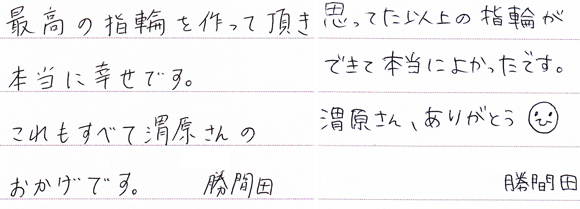 最高の指輪を作って頂き
本当に幸せです。
これもすべて渭原さんの
おかげです。 勝間田
思ってた以上の指輪が
できて本当によかったです。
渭原さん、ありがとう
勝間田